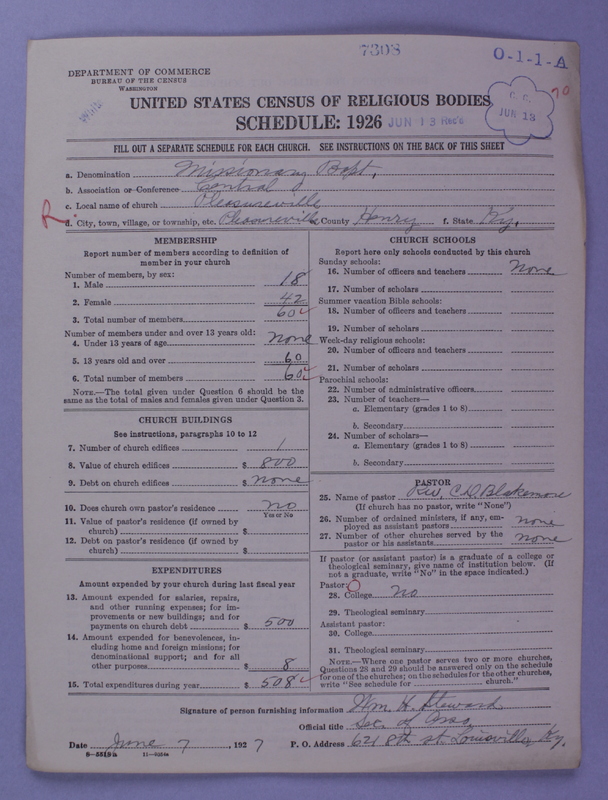 7308
O-1-1-A
DEPARTMENT OF COMMERCE
BUREAU OF THE CENSUS
WASHINGTON
C. C.
JUN 13
70
UNITED STATES CENSUS OF RELIGIOUS BODIES
SCHEDULE: 1926 JUN 13 Rec'd
FILL OUT A SEPARATE SCHEDULE FOR EACH CHURCH. SEE INSTRUCTIONS ON THE BACK OF THIS SHEET
a. Denomination Missionary Bapt.
b. Association or Conference Central
c. Local name of church Pleasureville
R.
d. City, town, village, or township, etc. Pleasureville County Henry f. State Ky.
MEMBERSHIP
Report number of members according to definition of
member in your church
Number of members, by sex:
1. Male 18
2. Female 42
3. Total number of members 60
Number of members under and over 13 years old:
4. Under 13 years of age None
5. 13 years old and over 60
6. Total number of members 60
NOTE.—The total given under Question 6 should be the
same as the total of males and females given under Question 3.
CHURCH BUILDINGS
See instructions, paragraphs 10 to 12
7. Number of church edifices 1
8. Value of church edifices $ 800
9. Debt on church edifices $ None
10. Does church own pastor's residence no
Yes or No
11. Value of pastor's residence (if owned by
church) $
12. Debt on pastor's residence (if owned by
church) $
EXPENDITURES
Amount expended by your church during last fiscal year
13. Amount expended for salaries, repairs,
and other running expenses; for im-
provements or new buildings; and for
payments on church debt $ 500
14. Amount expended for benevolences, in-
cluding home and foreign missions; for
denominational support; and for all
other purposes $ 8
15. Total expenditures during year $ 508
CHURCH SCHOOLS
Report here only schools conducted by this church
Sunday schools:
16. Number of officers and teachers None
17. Number of scholars
Summer vacation Bible schools:
18. Number of officers and teachers
19. Number of scholars
Week-day religious schools:
20. Number of officers and teachers
21. Number of scholars
Parochial schools:
22. Number of administrative officers
23. Number of teachers—
a. Elementary (grades 1 to 8)
b. Secondary
24. Number of scholars—
a. Elementary (grades 1 to 8)
b. Secondary
PASTOR
25. Name of pastor Rev. C.D. Blakemore
(If church has no pastor, write "None")
26. Number of ordained ministers, if any, em-
ployed as assistant pastors none
27. Number of other churches served by the
pastor or his assistants none
If pastor (or assistant pastor) is a graduate of a college or
theological seminary, give name of institution below. (If
not a graduate, write "No" in the space indicated.)
Pastor: O
28. College No
29. Theological seminary
Assistant pastor:
30. College
31. Theological seminary
NOTE.—Where one pastor serves two or more churches,
Questions 28 and 29 should be answered only on the schedule
for one of the churches; on the schedules for the other churches,
write "See schedule for church."
Signature of person furnishing information Wm. H. Steward
Official title Sec. of Asso.
Date June 7, 1927 P. O. Address 621 8th st. Louisville, Ky.